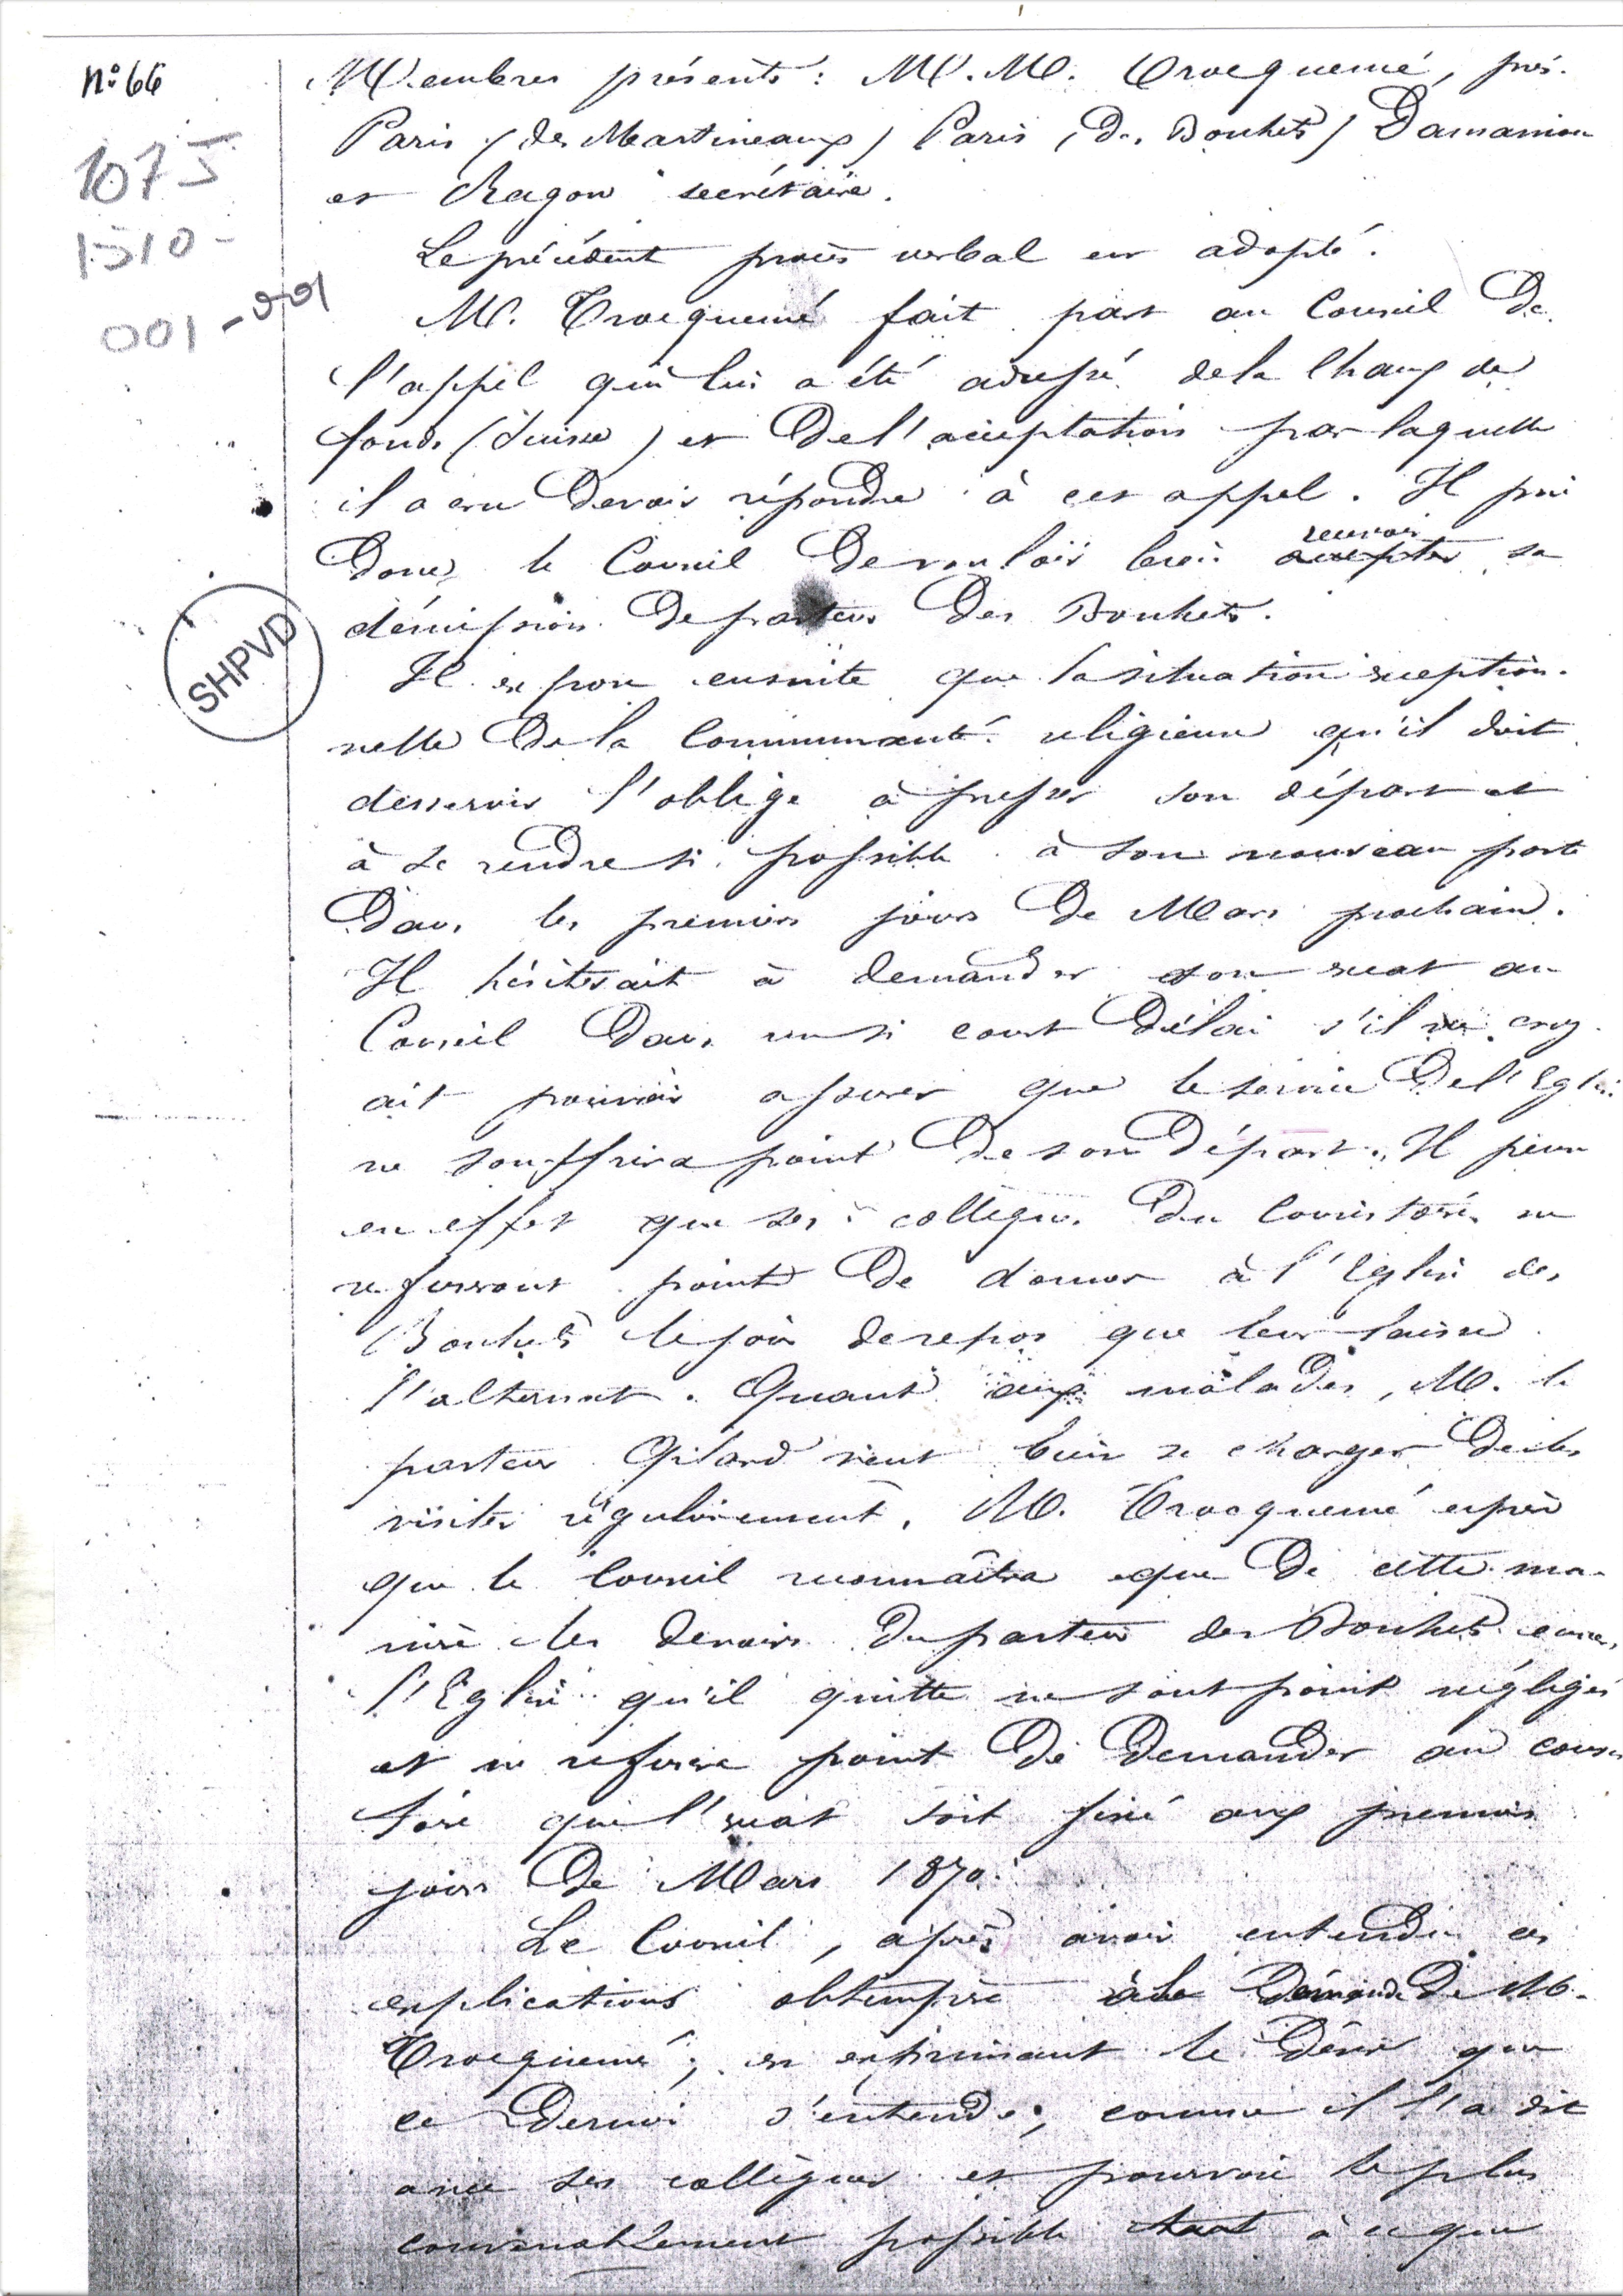 n° 66
107 J
1510 -
001 - 001
SHPVD
Membres présents : M.M. Trocquemé, prés.
Paris (des Martineaux) Paris (des Bouhets) Damanion
et Ragon secrétaire.
Le précédent procès verbal est adopté.
M. Trocquemé fait part au Conseil de
l'appel qui lui a été adressé de la Chaux de
fonds (Suisse) et de l'acceptation par laquelle
il a cru devoir répondre à cet appel. Il prie
donc le Conseil de vouloir bien accepter recevoir sa
démission de pasteur des Bouhets.
Il expose ensuite que la situation exception-
nelle de la Communauté religieuse qu'il doit
desservir l'oblige à presser son départ et
à se rendre si possible à son nouveau poste
dans les premiers jours de Mars prochain.
Il hésiterait à demander son exeat au
Conseil dans un si court délai s'il ne croy-
ait pouvoir assurer que le service de l'Eglise
ne souffrira point de son départ. Il pense
en effet que ses collègues du Consistoire ne
refuseront point de donner à l'Eglise des
Bouhets le jour de repos que leur laisse
l'alternat. Quant aux malades, M. le
pasteur Gilard veut bien se charger de les
visiter régulièrement. M. Trocquemé espère
que le Conseil reconnaîtra que de cette ma-
nière les devoirs du pasteur des Bouhets envers
l'Eglise qu'il quitte ne sont point négligés
et ne refusera point de demander au consis-
toire que l'exeat soit fixé aux premiers
jours de Mars 1870.
Le Conseil, après avoir entendu ces
explications obtempère à la demande de M.
Trocquemé, en exprimant le désir que
ce dernier s'entende, comme il l'a dit
avec ses collègues et pourvoie le plus
convenablement possible à ce que